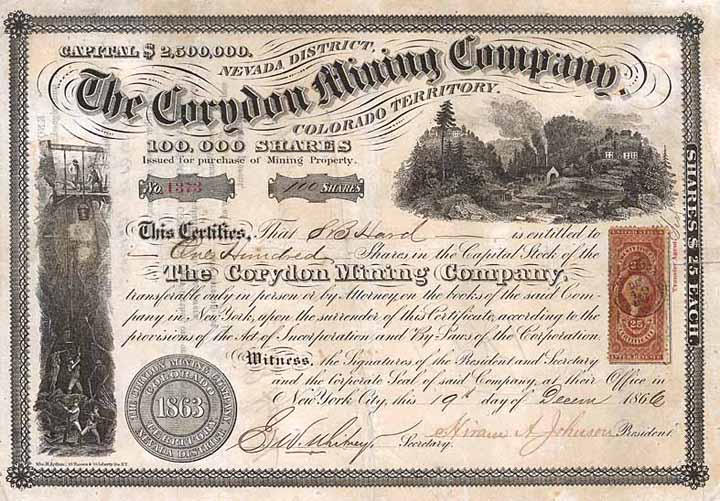 CAPITAL $2,500,000.
NEVADA DISTRICT,
The Corydon Mining Company,
COLORADO TERRITORY.
100,000 SHARES
Issued for purchase of Mining Property.
No. 1373 100 SHARES
This Certifies, That S B Hard is entitled to
One Hundred Shares in the Capital Stock of the
The Corydon Mining Company,
transferable only in person or by Attorney on the books of the said Com-
pany in New York, upon the surrender of this Certificate, according to the
provisions of the Act of Incorporation and By Laws of the Corporation.
Witness, the Signatures of the President and Secretary
and the Corporate Seal of said Company, at their Office in
New York City, this 19th day of Decem 1866
E. W. Whitney Secretary. Hiram A Johnson President
THE CORYDON MINING COMPANY
COLORADO
1863
TERRITORY
NEVADA DISTRICT
SHARES $25 EACH.
Transfer Agent
25
CERTIFICATE